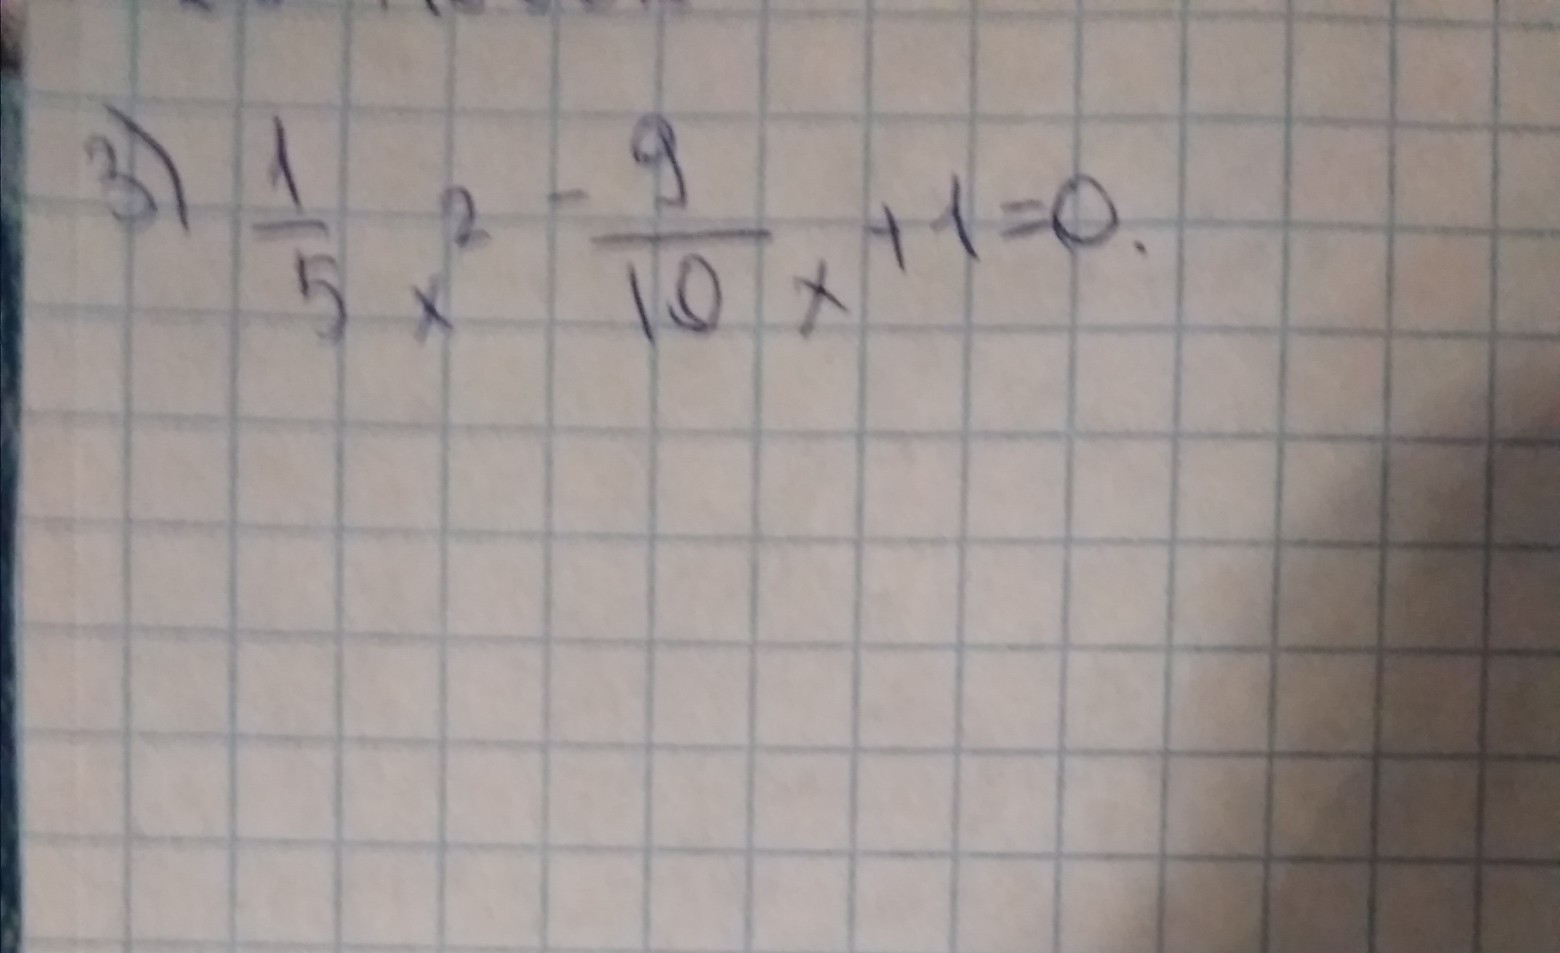 3) 1/5 x² - 9/10 x + 1 = 0.